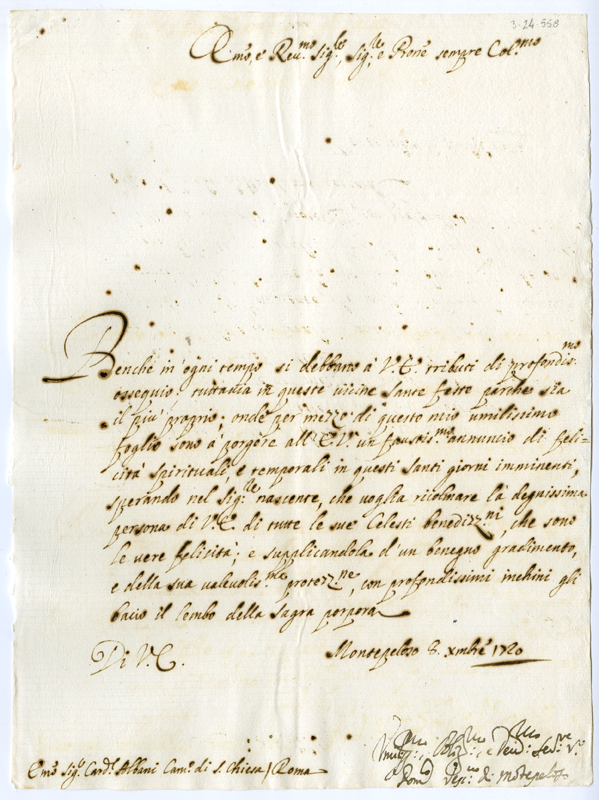 3-24-558
Emo, e Reu.mo Sig.re, Sig.re e Prone sempre Col.mo
Benche in ogni tempo si debbano à V.E. tributi di profondis.mo
ossequio: tuttauia in queste uicine Sante feste parche sia
il più proprio; onde per mezzo di questo mio umilissimo
foglio sono à porgere all'E.V. un faustis.mo annuncio di feli-
cità spirituale, e temporali in questi santi giorni imminenti,
sperando nel Sig.re nascente, che voglia ricolmare la degnissima
persona di V.E. di tutte le sue Celesti benedizz.ni, che sono
le vere felicità; e supplicandola d'un benegno gradimento,
e della sua valevolis.ma protezz.ne, con profondissimi inchini gli
bacio il lembo della Sagra porpora
Di V.E.
Montepeloso 8. Xmbre 1720
Vmilis.mo e Seru.re V.o
di Motepeloso
Emo Sig.r Card.l Albani Cam.o di S. Chiesa / Roma